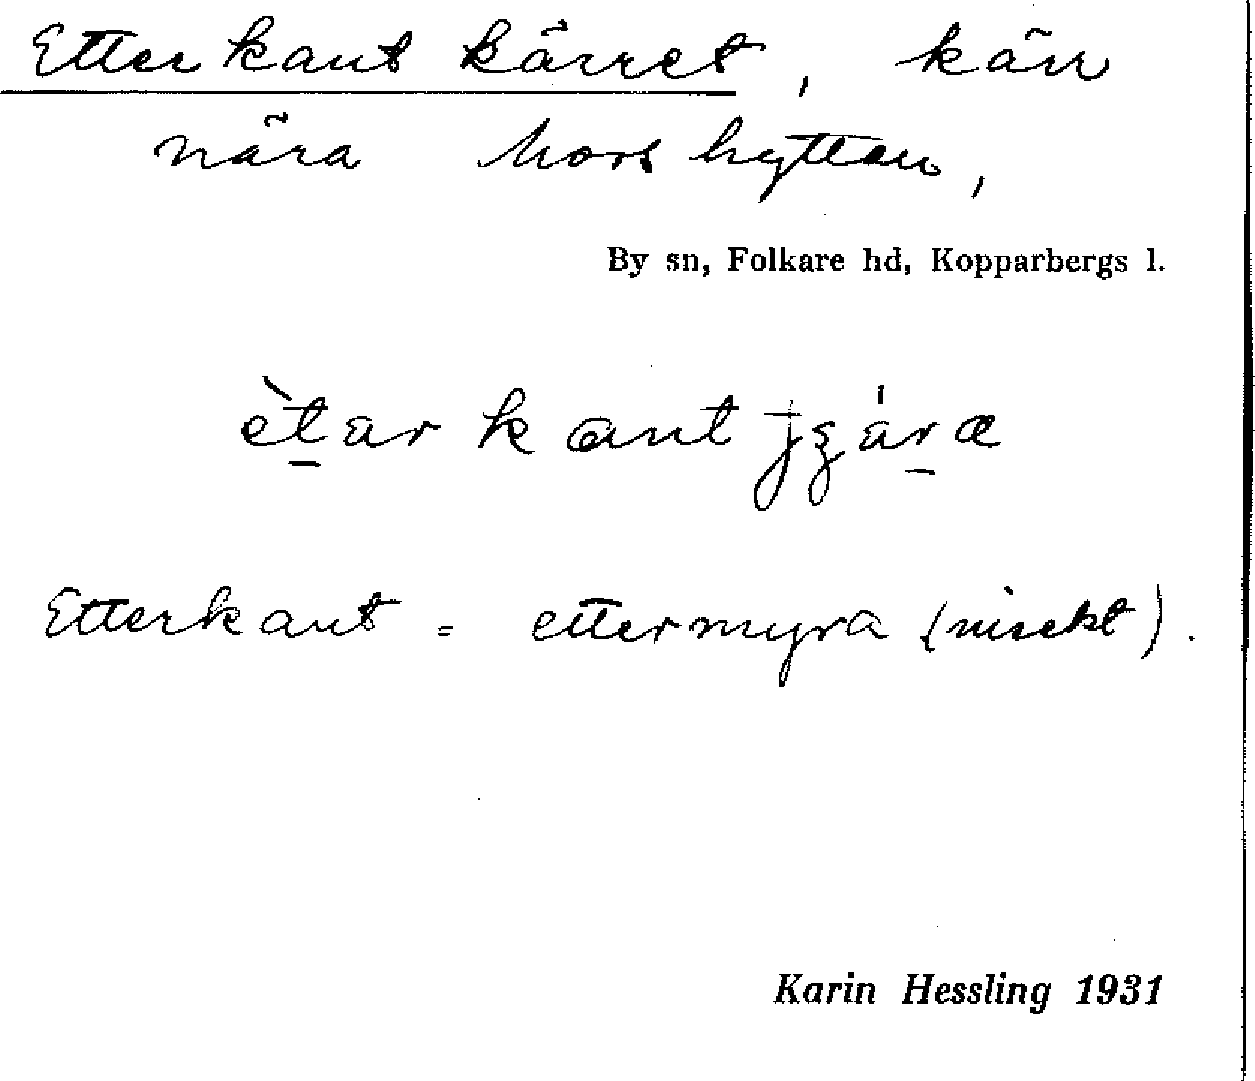 Etterkantkärret, kärr
nära Morshyttan,
By sn, Folkare hd, Kopparbergs l.
Etterkant = ettermyra (insekt).
Karin Hessling 1931